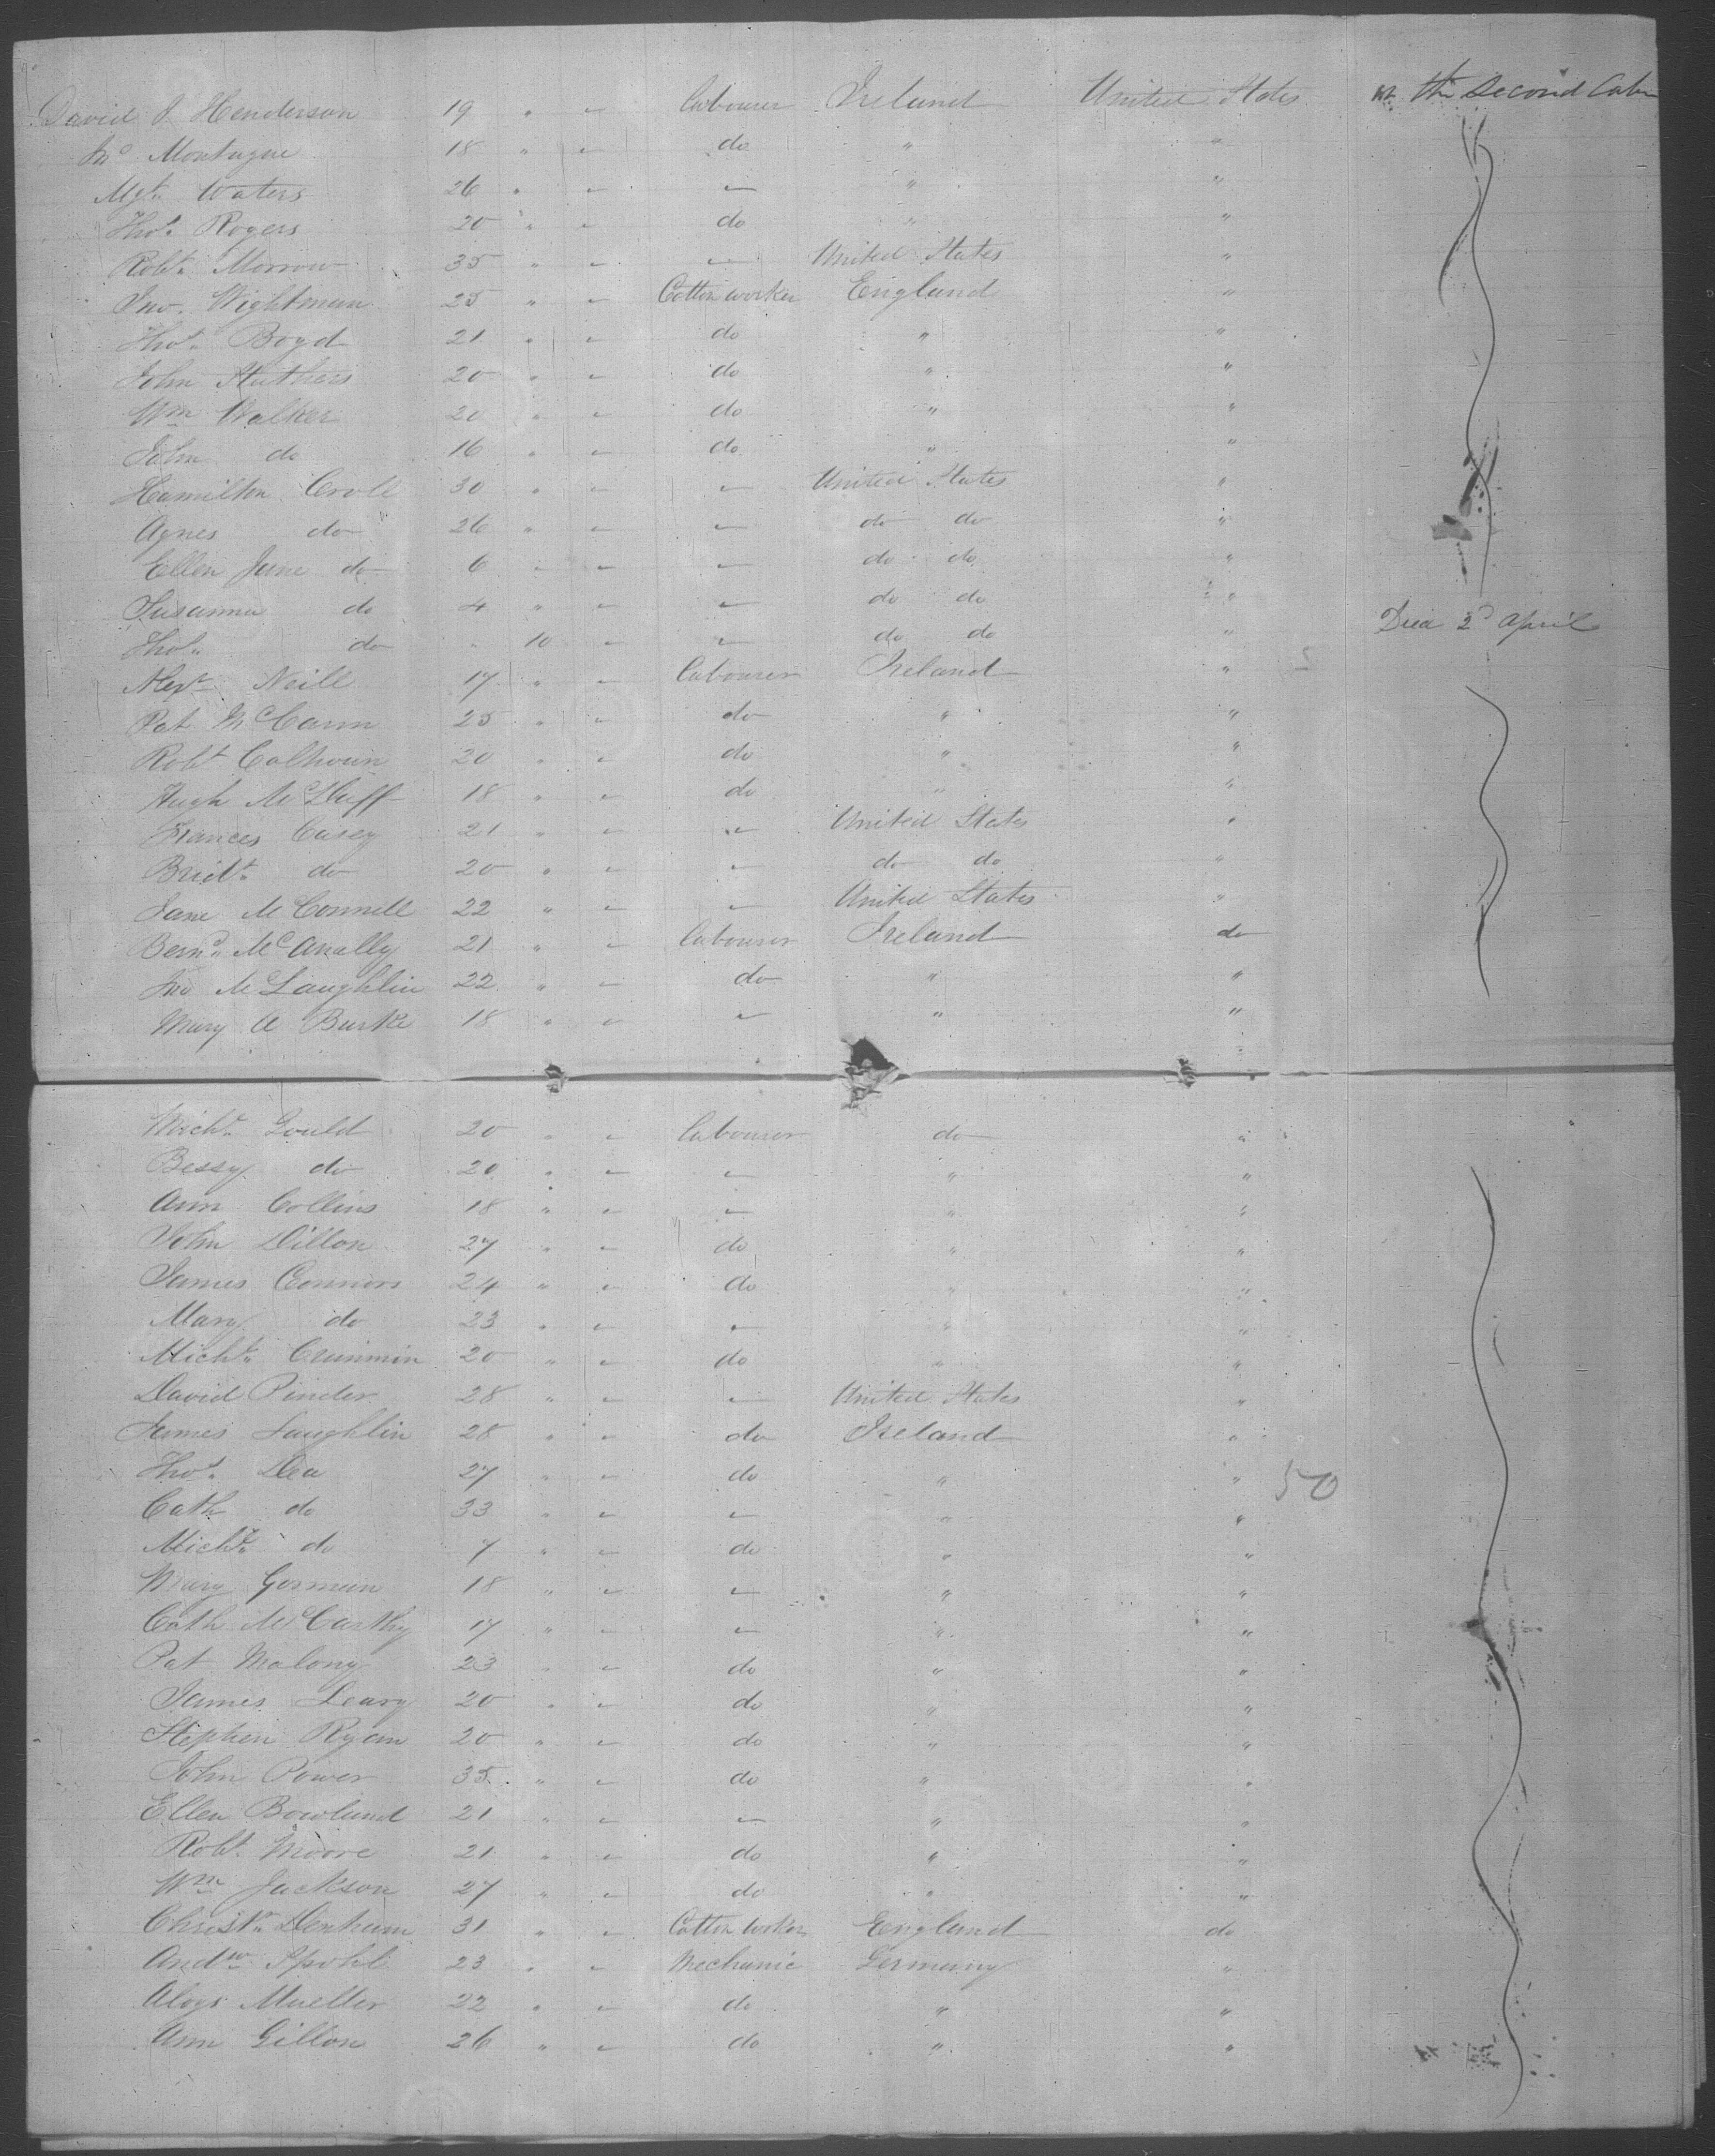 David J Henderson 19 " " Labourer Ireland United States in the Second Cabin
Jno Montague 18 " " do " "
Mgt. Waters 26 " " " " "
Thos. Rogers 20 " " do " "
Robt. Morrow 35 " " " United States "
Jno. Wightman 25 " " Cotton worker England "
Thos. Boyd 21 " " do " "
John 20 " " do " "
Wm Walker 20 " " do " "
John do 16 " " do " "
Hamilton 30 " " " United States "
Agnes do 26 " " " do do "
Ellen Jane do 6 " " " do do "
Susanna do 4 " " " do do "
Thos. do " 10 " " do do " Died 2d April
Alexr Neill 17 " " Labourer Ireland "
Pat McCann 25 " " do " "
Robt Calhoun 20 " " do " "
Hugh McDuff 18 " " do " "
Frances Casey 21 " " " United States "
Bridt. do 20 " " " do do "
Jane McConnell 22 " " " United States "
Bernd. McAnally 21 " " Labourer Ireland do
Jno McLaughlin 22 " " do " "
Mary A Burke 18 " " " " "
Michl. Gould 20 " " Labourer do "
Bessy do 20 " " " " "
Ann Collins 18 " " " " "
John Dillon 27 " " do " "
James Connors 24 " " do " "
Mary do 23 " " " " "
Michl. Crimmin 20 " " do " "
David Pinder 28 " " " United States "
James Laughlin 28 " " do Ireland "
Thos. Dea 27 " " do " " 50
Cath do 33 " " " " "
Michl. do 7 " " do " "
Mary Gorman 18 " " " " "
Cath McCarthy 17 " " " " "
Pat Malony 23 " " do " "
James Leary 20 " " do " "
Stephen Ryan 20 " " do " "
John Power 35 " " do " "
Ellen Bowland 21 " " " " "
Robt. Moore 21 " " do " "
Wm Jackson 27 " " do " "
Christr. Denham 31 " " Cotton worker England do
Andw. Spohl 23 " " Mechanic Germany "
Aloys Mueller 22 " " do " "
Ann Gillon 26 " " do " "